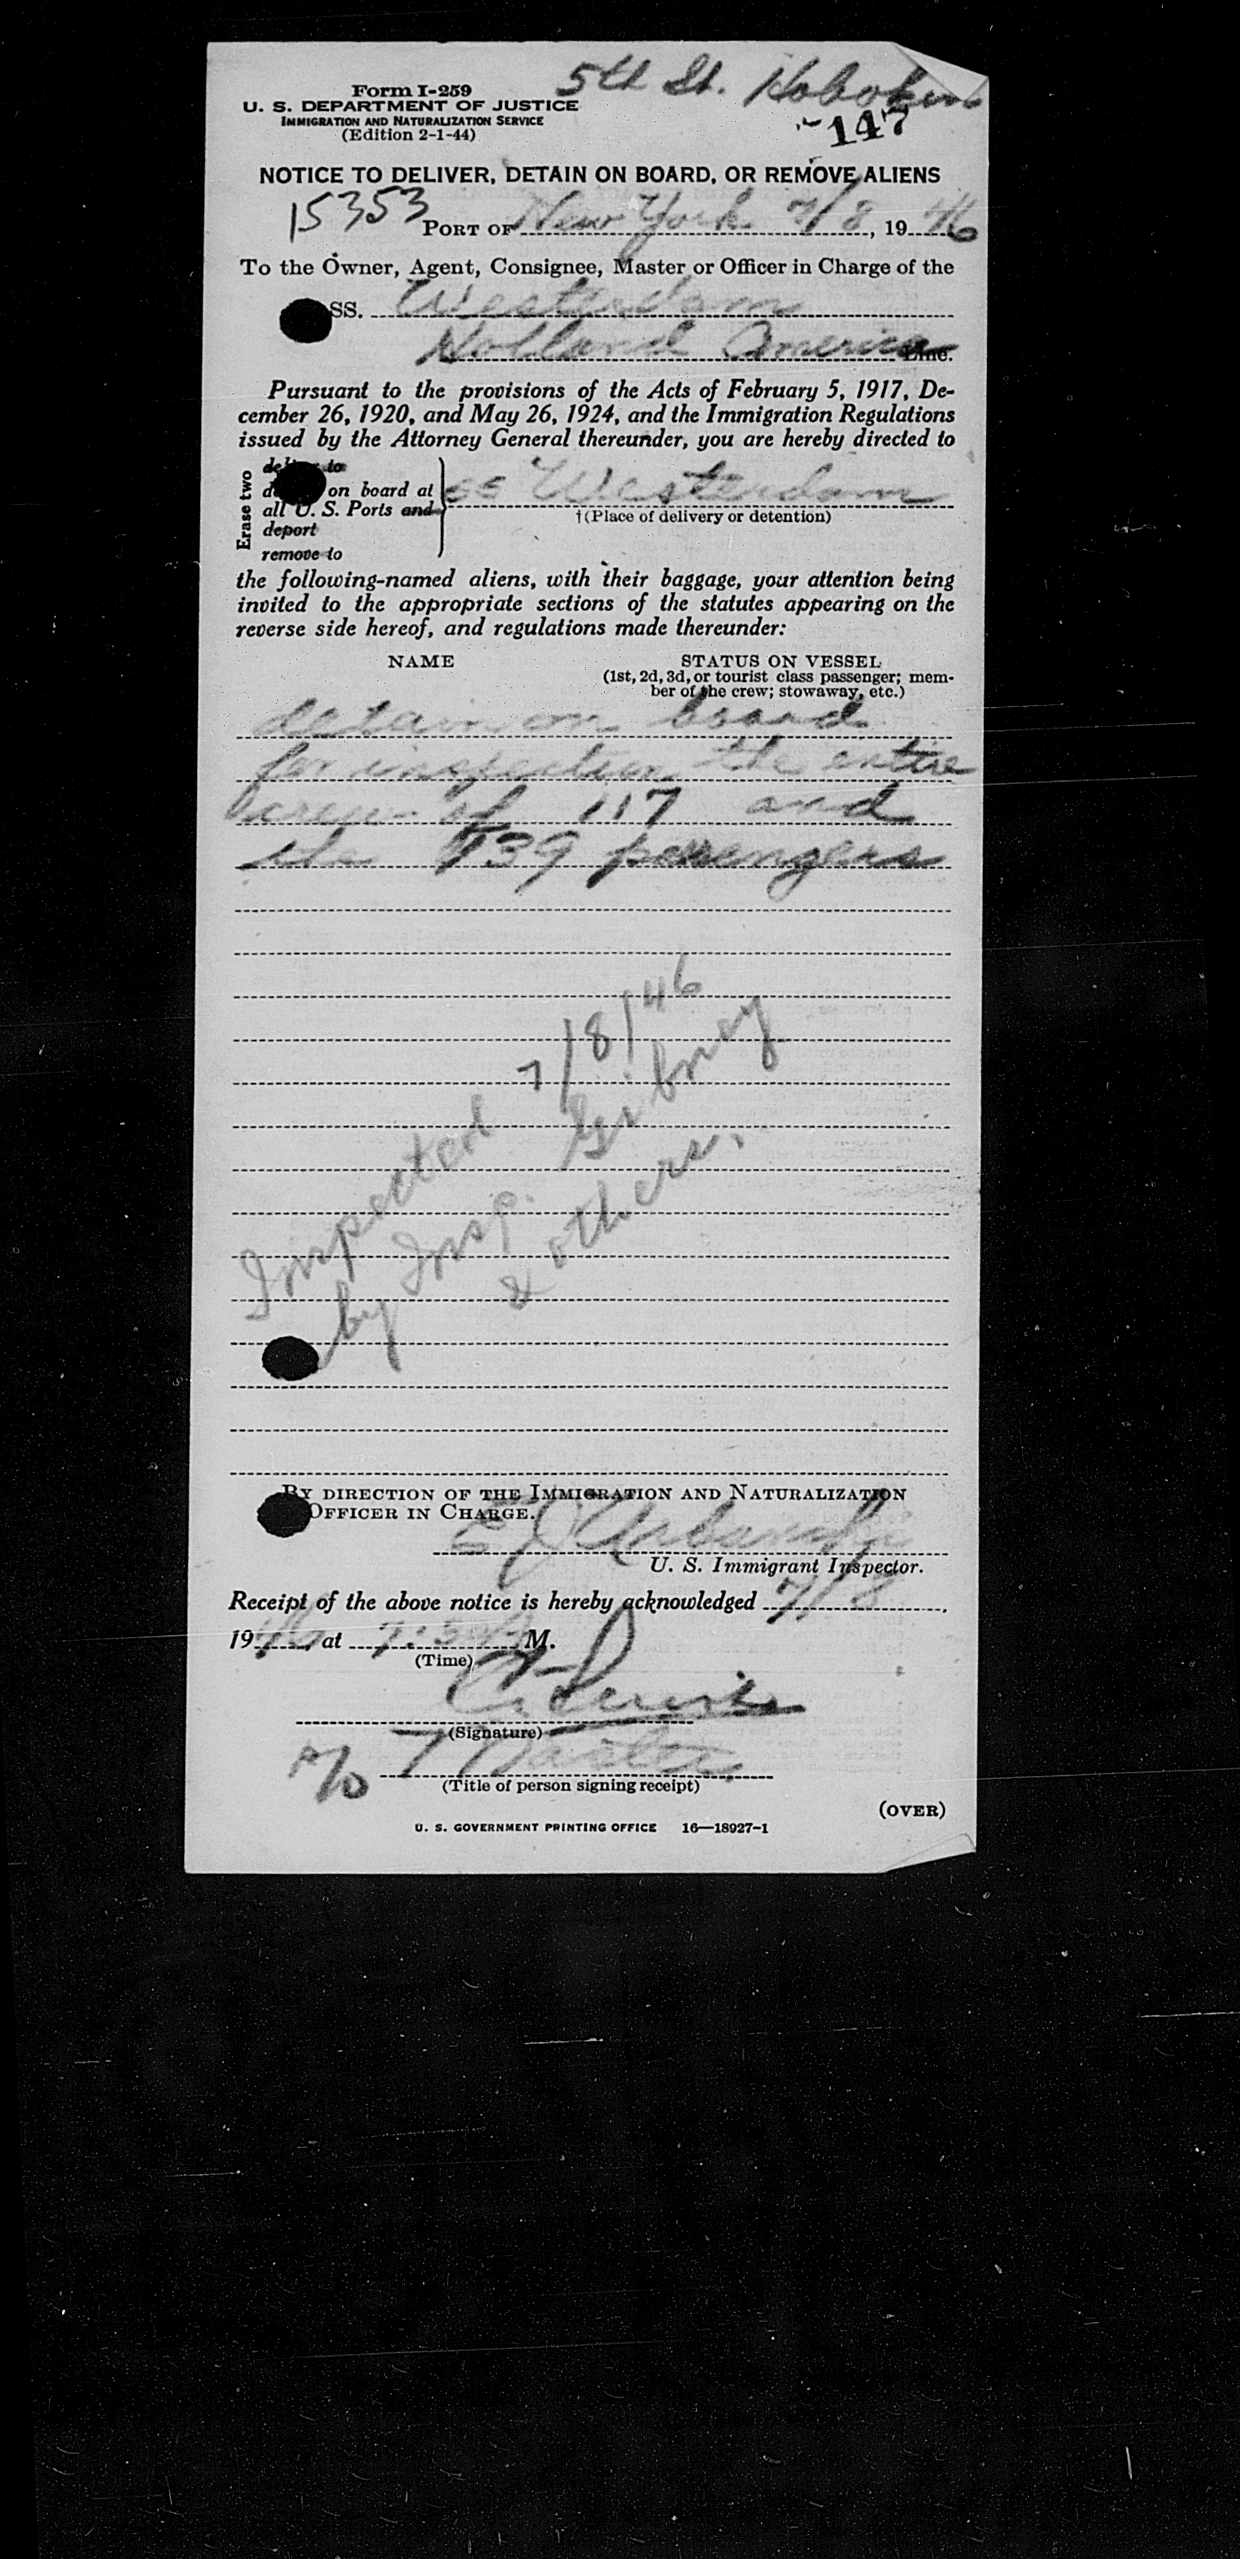 5th St. Hoboken
Form I-259
U. S. DEPARTMENT OF JUSTICE
IMMIGRATION AND NATURALIZATION SERVICE
(Edition 2-1-44)
147
NOTICE TO DELIVER, DETAIN ON BOARD, OR REMOVE ALIENS
15353
PORT OF New York 7/8, 1946
To the Owner, Agent, Consignee, Master or Officer in Charge of the
SS. Westerdam
Holland America Line.
Pursuant to the provisions of the Acts of February 5, 1917, De-
cember 26, 1920, and May 26, 1924, and the Immigration Regulations
issued by the Attorney General thereunder, you are hereby directed to
Erase two
deliver to
on board at
all U. S. Ports and
deport
remove to
SS Westerdam
†(Place of delivery or detention)
the following-named aliens, with their baggage, your attention being
invited to the appropriate sections of the statutes appearing on the
reverse side hereof, and regulations made thereunder:
NAME STATUS ON VESSEL
(1st, 2d, 3d, or tourist class passenger; mem-
ber of the crew; stowaway, etc.)
detain on board
for inspection the entire
crew of 117 and
the 139 passengers
Inspected 7/8/46
by Insp. Gibney
& others.
BY DIRECTION OF THE IMMIGRATION AND NATURALIZATION
OFFICER IN CHARGE.
U. S. Immigrant Inspector.
Receipt of the above notice is hereby acknowledged 7/8,
1946 at M.
(Time)
(Signature)
Master
(Title of person signing receipt)
(OVER)
U. S. GOVERNMENT PRINTING OFFICE 16—18927-1